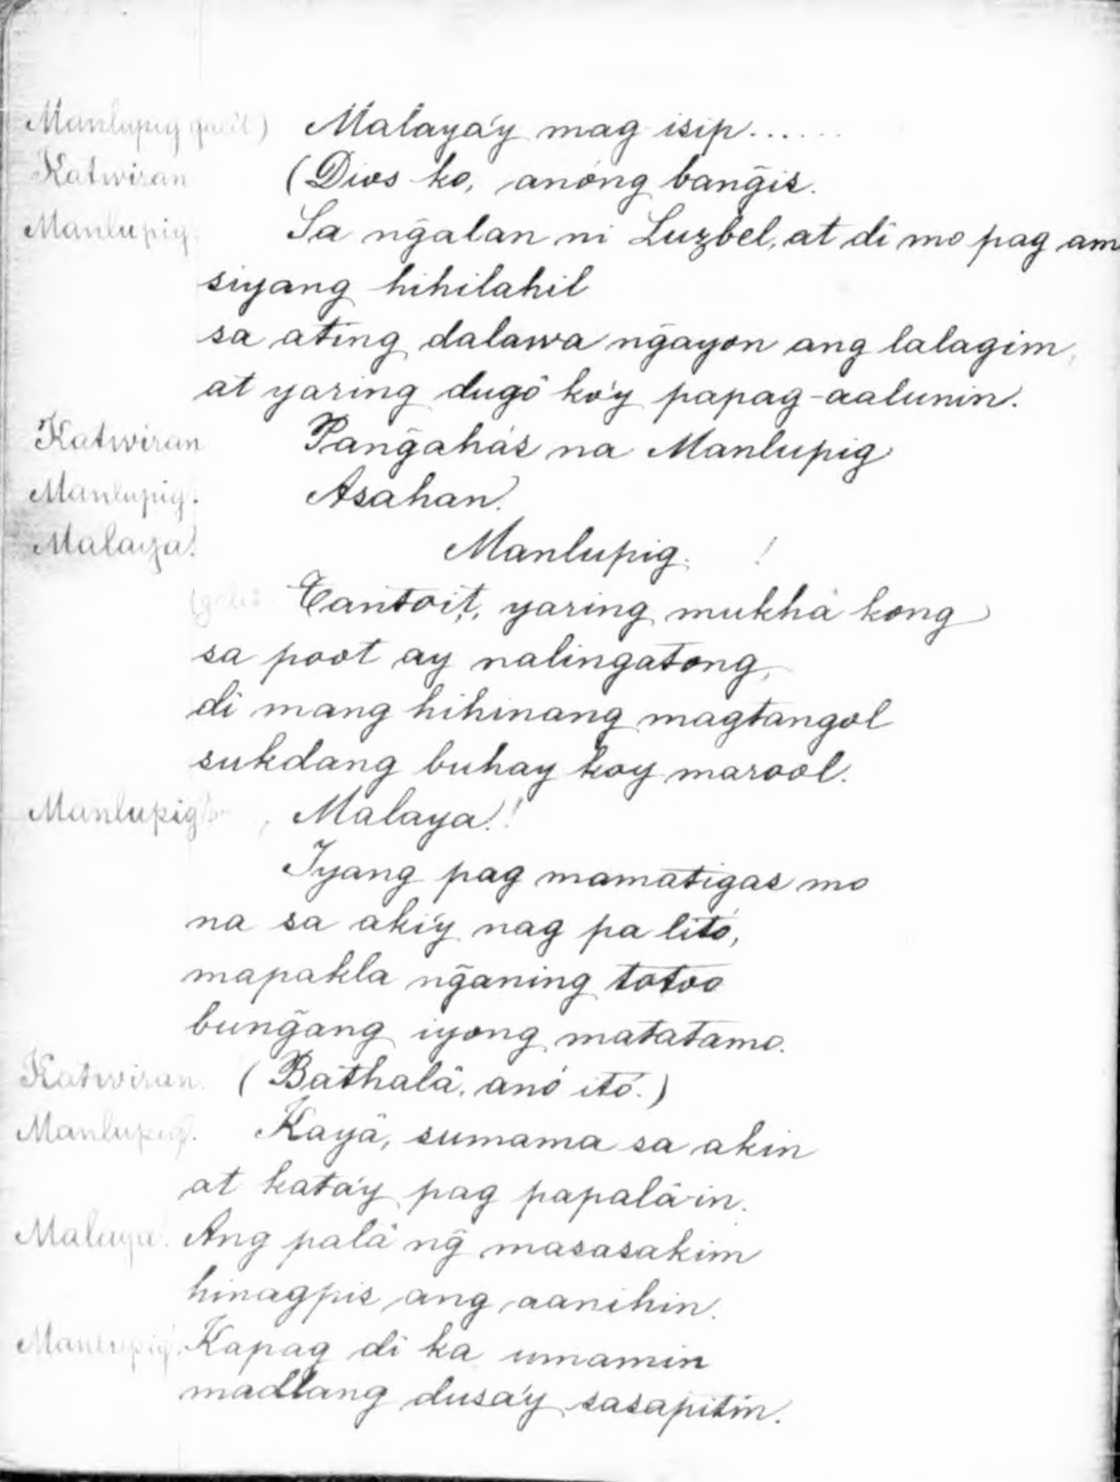 Manlupig galit) Malaya'y mag isip......
Katwiran (Dios ko, anóng bang̃is.
Manlupig. Sa ng̃alan ni Luzbel, at di mo pag am
siyang hihilahil
sa ating dalawa ng̃ayon ang lalagim,
at yaring dugô ko'y papag-aalunin.
Katwiran Pang̃ahás na Manlupig
Manlupig. Asahan.
Malaya. Manlupig. !
Tantoit, yaring mukhá kong
sa poot ay nalingatong,
di mang hihinang magtangol
sukdang buhay koy marool.
Manlupig Malaya!
Iyang pag mamatigas mo
na sa aki'y nag pa litó,
mapakla ng̃aning totoo
bung̃ang iyong matatamo.
Katwiran. (Bathalâ, anó itó.)
Manlupig. Kayâ, sumama sa akin
at kata'y pag papalâin.
Malaya. Ang palâ ng̃ masasakim
hinagpis ang aanihin.
Manlupig. Kapag di ka umamin
madlang dusa'y sasapitin.